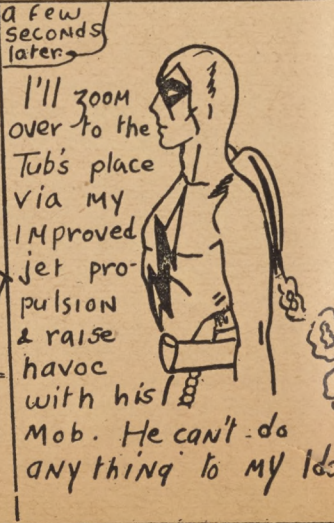 a few
seconds
later
I'll zoom
over to the
Tub's place
via my
improved
jet pro-
pulsion
& raise
havoc
with his
Mob. He can't do
any thing to my Ids